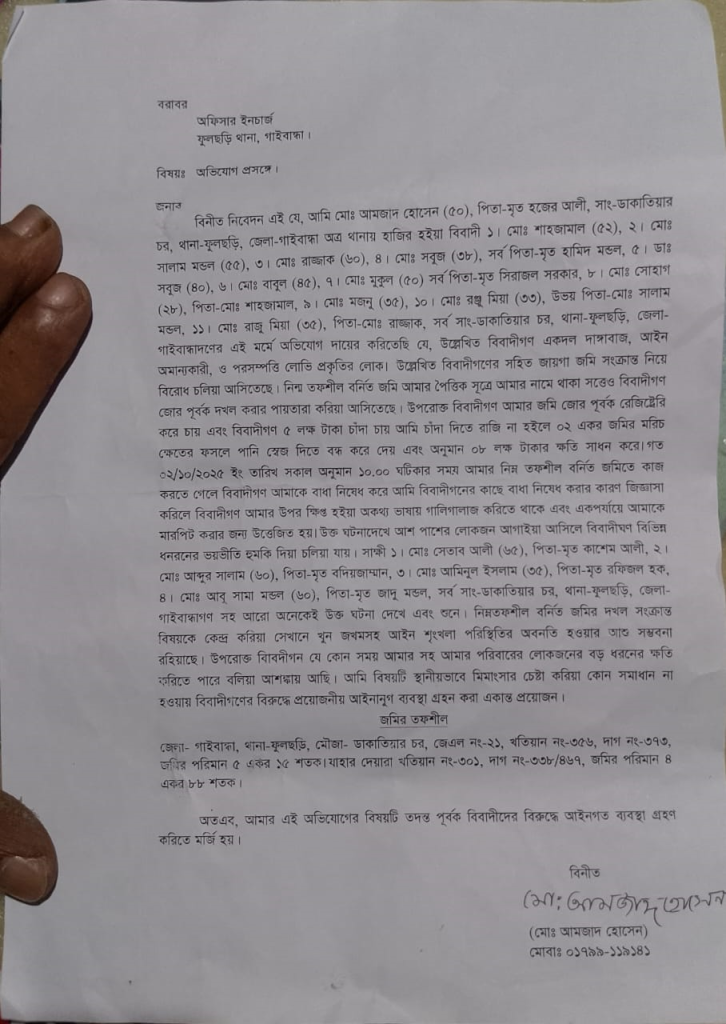 বরাবর
অফিসার ইনচার্জ
ফুলছড়ি থানা, গাইবান্ধা।
বিষয়ঃ অভিযোগ প্রসঙ্গে।
জনাব
বিনীত নিবেদন এই যে, আমি মোঃ আমজাদ হোসেন (৫০), পিতা-মৃত হজের আলী, সাং-ডাকাতিয়ার
চর, থানা-ফুলছড়ি, জেলা-গাইবান্ধা অত্র থানায় হাজির হইয়া বিবাদী ১। মোঃ শাহজামাল (৫২), ২। মোঃ
সালাম মন্ডল (৫৫), ৩। মোঃ রাজ্জাক (৬০), ৪। মোঃ সবুজ (৩৮), সর্ব পিতা-মৃত হামিদ মন্ডল, ৫। ডাঃ
সবুজ (৪০), ৬। মোঃ বাবুল (৪৫), ৭। মোঃ মুকুল (৫০) সর্ব পিতা-মৃত সিরাজল সরকার, ৮। মোঃ সোহাগ
(২৮), পিতা-মোঃ শাহজামাল, ৯। মোঃ মজনু (৩৫), ১০। মোঃ রঞ্জু মিয়া (৩৩), উভয় পিতা-মোঃ সালাম
মন্ডল, ১১। মোঃ রাজু মিয়া (৩৫), পিতা-মোঃ রাজ্জাক, সর্ব সাং-ডাকাতিয়ার চর, থানা-ফুলছড়ি, জেলা-
গাইবান্ধাদণের এই মর্মে অভিযোগ দায়ের করিতেছি যে, উল্লেখিত বিবাদীগণ একদল দাঙ্গাবাজ, আইন
অমান্যকারী, ও পরসম্পত্তি লোভি প্রকৃতির লোক। উল্লেখিত বিবাদীগণের সহিত জায়গা জমি সংক্রান্ত নিয়ে
বিরোধ চলিয়া আসিতেছে। নিন্ম তফশীল বর্নিত জমি আমার পৈত্তিক সূত্রে আমার নামে থাকা সত্তেও বিবাদীগণ
জোর পূর্বক দখল করার পায়তারা করিয়া আসিতেছে। উপরোক্ত বিবাদীগণ আমার জমি জোর পূর্বক রেজিষ্ট্রেরি
করে চায় এবং বিবাদীগণ ৫ লক্ষ টাকা চাঁদা চায় আমি চাঁদা দিতে রাজি না হইলে ০২ একর জমির মরিচ
ক্ষেতের ফসলে পানি স্বেজ দিতে বন্ধ করে দেয় এবং অনুমান ০৮ লক্ষ টাকার ক্ষতি সাধন করে। গত
০২/১০/২০২৫ ইং তারিখ সকাল অনুমান ১০.০০ ঘটিকার সময় আমার নিম্ন তফশীল বর্নিত জমিতে কাজ
করতে গেলে বিবাদীগণ আমাকে বাধা নিষেধ করে আমি বিবাদীগনের কাছে বাধা নিষেধ করার কারণ জিজ্ঞাসা
করিলে বিবাদীগণ আমার উপর ক্ষিপ্ত হইয়া অকথ্য ভাষায় গালিগালাজ করিতে থাকে এবং একপর্যায়ে আমাকে
মারপিট করার জন্য উত্তেজিত হয়। উক্ত ঘটনাদেখে আশ পাশের লোকজন আগাইয়া আসিলে বিবাদীঘণ বিভিন্ন
ধনরনের ভয়ভীতি হুমকি দিয়া চলিয়া যায়। সাক্ষী ১। মোঃ সেতাব আলী (৬৫), পিতা-মৃত কাশেম আলী, ২।
মোঃ আব্দুর সালাম (৬০), পিতা-মৃত বদিয়জাম্মান, ৩। মোঃ আমিনুল ইসলাম (৩৫), পিতা-মৃত রফিজল হক,
৪। মোঃ আবু সামা মন্ডল (৬০), পিতা-মৃত জাদু মন্ডল, সর্ব সাং-ডাকাতিয়ার চর, থানা-ফুলছড়ি, জেলা-
গাইবান্ধাগণ সহ আরো অনেকেই উক্ত ঘটনা দেখে এবং শুনে। নিম্নতফশীল বর্নিত জমির দখল সংক্রান্ত
বিষয়কে কেন্দ্র করিয়া সেখানে খুন জখমসহ আইন শৃংখলা পরিস্থিতির অবনতি হওয়ার আশু সম্ভবনা
রহিয়াছে। উপরোক্ত বিাবদীগন যে কোন সময় আমার সহ আমার পরিবারের লোকজনের বড় ধরনের ক্ষতি
করিতে পারে বলিয়া আশঙ্কায় আছি। আমি বিষয়টি স্থানীয়ভাবে মিমাংসার চেষ্টা করিয়া কোন সমাধান না
হওয়ায় বিবাদীগণের বিরুদ্ধে প্রয়োজনীয় আইনানুগ ব্যবস্থা গ্রহন করা একান্ত প্রয়োজন।
জমির তফশীল
জেলা- গাইবান্ধা, থানা-ফুলছড়ি, মৌজা- ডাকাতিয়ার চর, জেএল নং-২১, খতিয়ান নং-৩৫৬, দাগ নং-৩৭৩,
জমির পরিমান ৫ একর ১৫ শতক। যাহার দেয়ারা খতিয়ান নং-৩০১, দাগ নং-৩৩৮/৪৬৭, জমির পরিমান ৪
একর ৮৮ শতক।
অতএব, আমার এই অভিযোগের বিষয়টি তদন্ত পূর্বক বিবাদীদের বিরুদ্ধে আইনগত ব্যবস্থা গ্রহণ
করিতে মর্জি হয়।
বিনীত
মো: আমজাদ হোসেন
(মোঃ আমজাদ হোসেন)
মোবাঃ ০১৭৯৯-১১৯১৪১